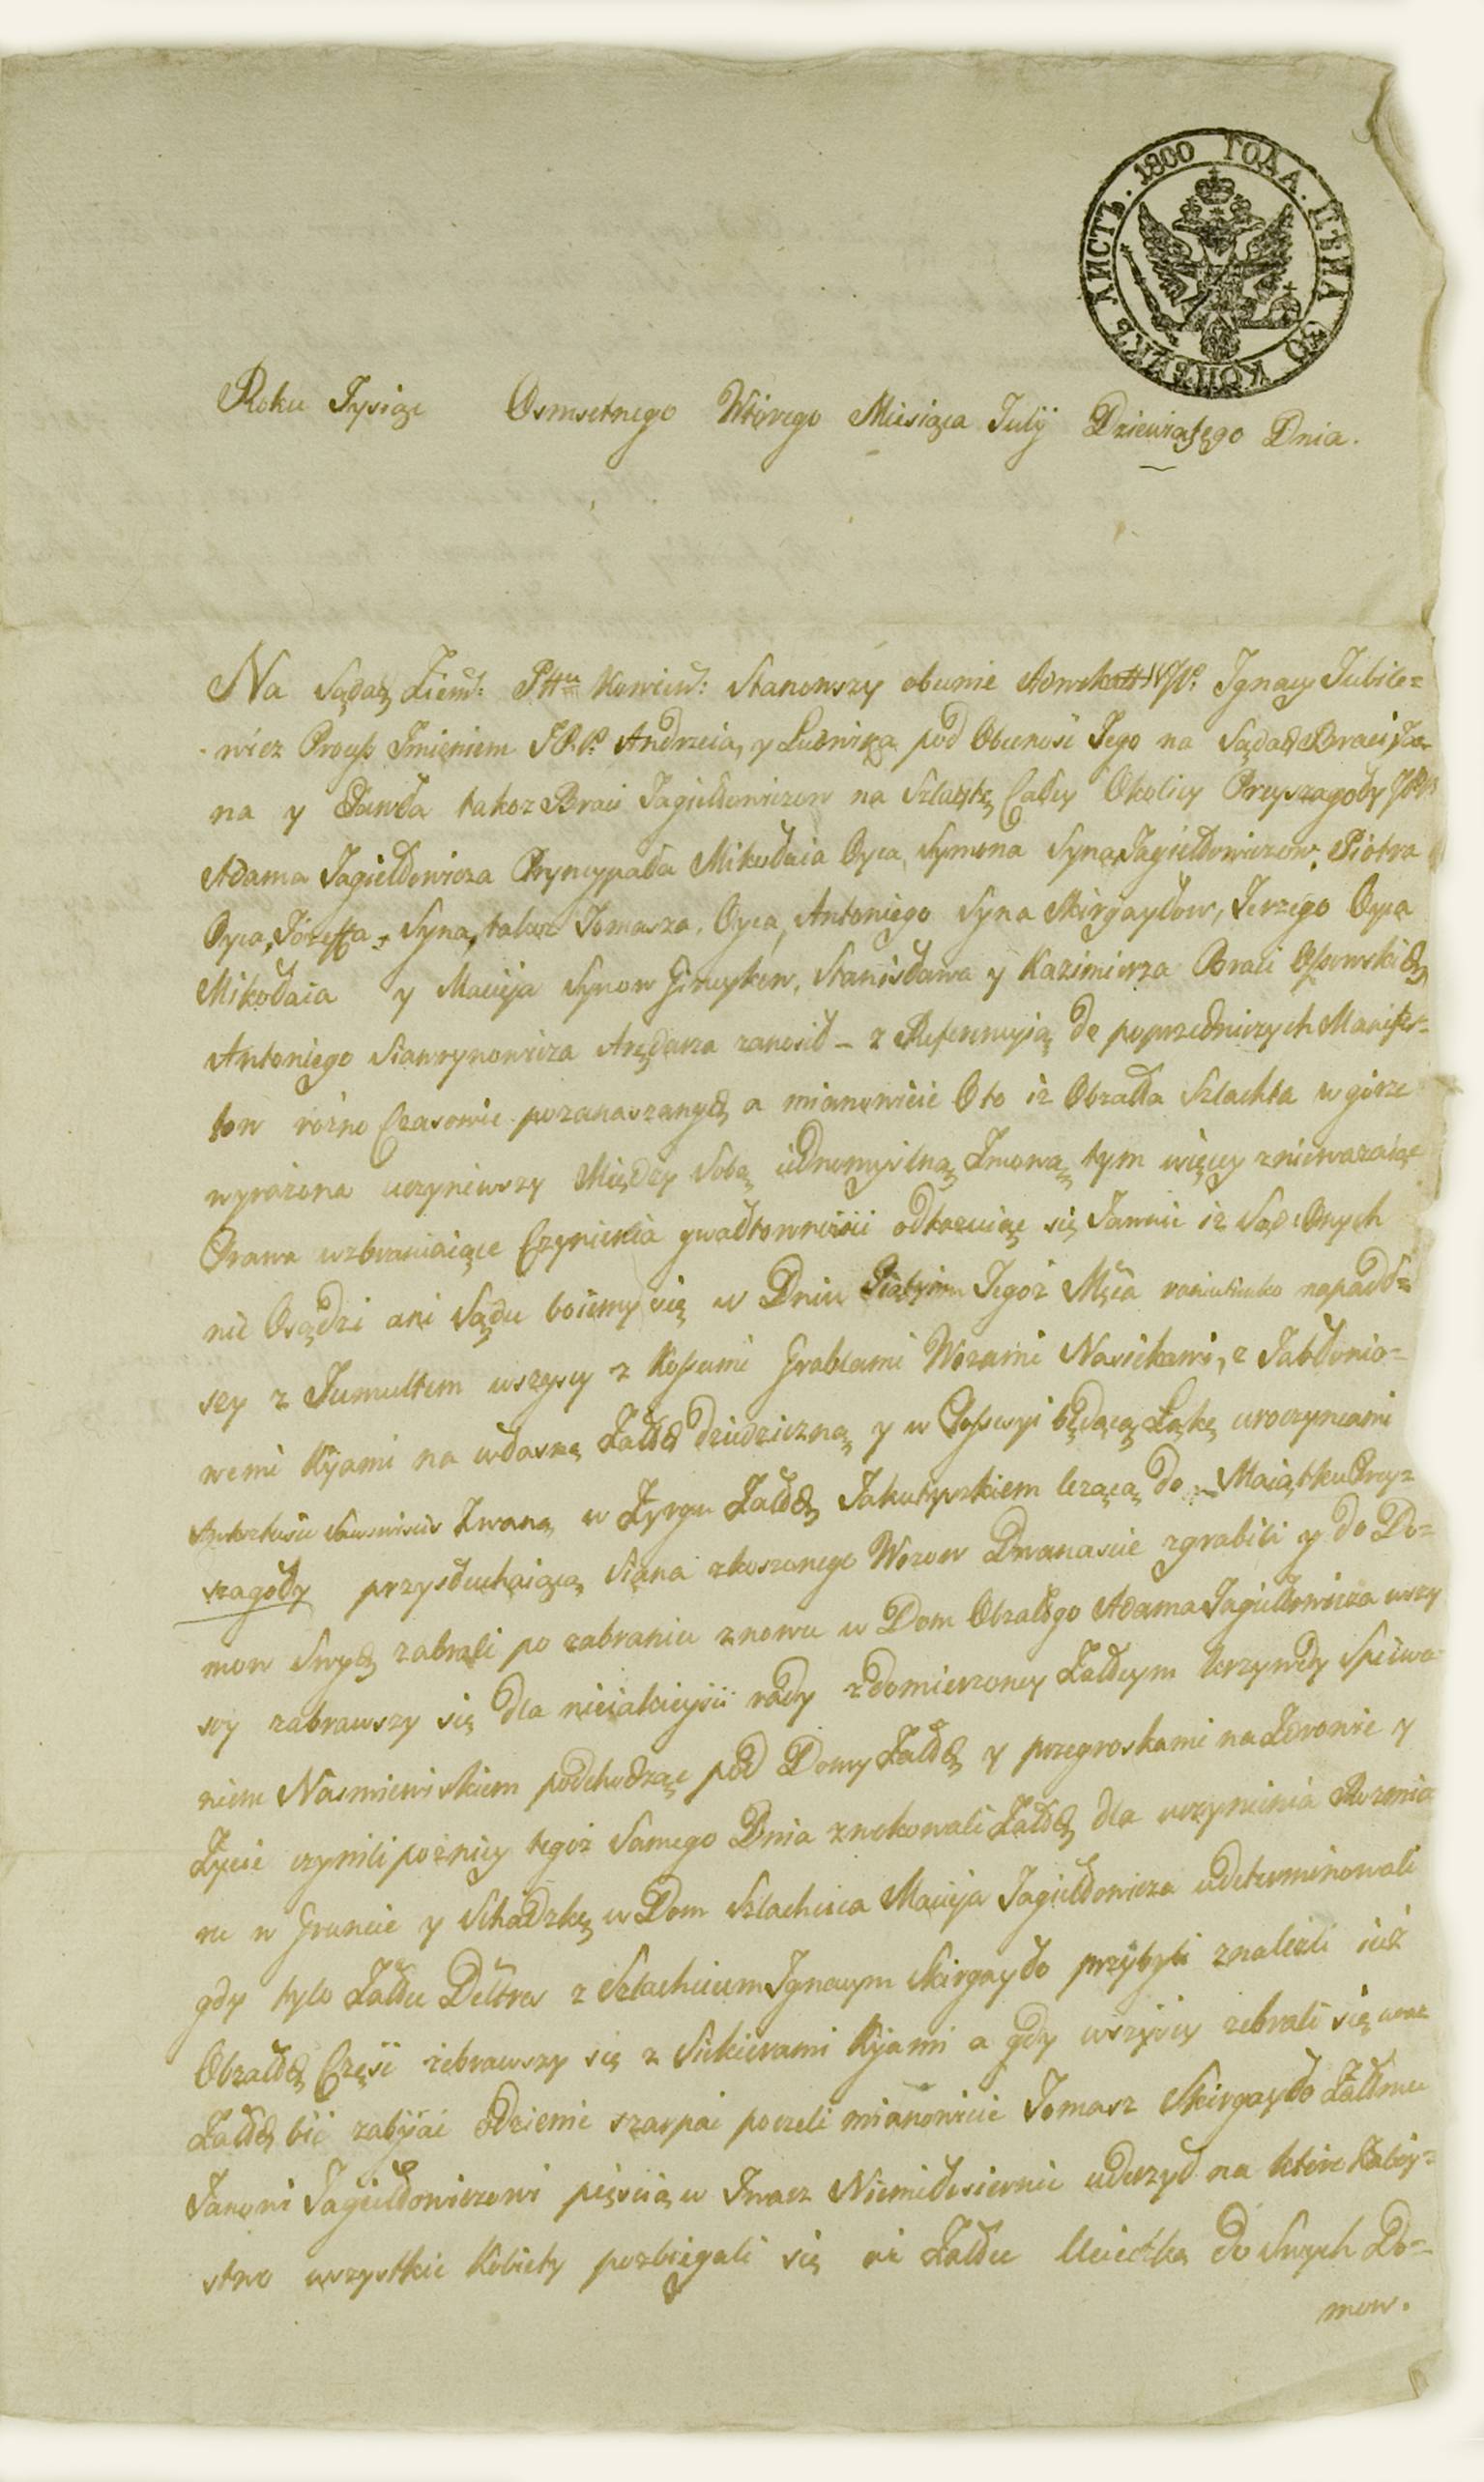 1800 ГОДА. ЦѢНА 30 КОПѢЕКЪ ЛИСТЪ.
Roku Tysiąc Osmsetnego Wtórego Miesiąca Julij Dziewiątego Dnia.
Na Sądach Ziem: Pttu Kowień: Stanowszy obecnie Ignacy Jubile=
wicz Imieniem Andrzeia, y Ludwika pod Obecność Jego na Sądach Braci Ja
na y Pawła takoż Braci Jagiełłowiczow na Szlachtę Całey Okolicy Preyszagoły
Adama Jagiełłowicza Pryncypała Mikołaia Oyca, Symona Syna, Jagiełłowiczow, Piotra
Oyca, Józeffa Syna, takoż Tomasza Oyca, Antoniego Syna Skirgayłow, Jerzego Oyca
Mikołaia y Macieja Synow Stanisława y Kazimierza Braci
Antoniego Ławrynowicza Arędarza zanosił – z Referencyią do poprzedniczych Manifes=
tow rózno Czasowie pozanaszanych a mianowicie Oto iż Obżałła Szlachta w górze
wyrażona uczyniwszy Między Sobą iednomyślną Zmową tym więcey znieważaiąc
Prawa wzbraniaiące Czynienia gwałtowności odkazuiąc się Jawnie iż Sąd Onych
nie Osądzi ani Sądu boiemy się w Dniu Piątym Tegoż Mca raniusieńko napadł=
szy z Tumultem wszyscy z Kossami Grablami Wozami y Jabłonio=
wemi Kijami na własną Żałch dziedziczną y w Possesyi będącą Łąkę uroczyncami
Zwaną w Żyrgu Żałch Jakutyszkiem leżącą do Maiątku Prey=
szagoły przysłuchaiącą Siana zkoszonego Wozow Dwanascie zgrabili y do Do=
mow Swych zabrali po zabraniu znowu w Dom Obżałłgo Adama Jagiełłowicza wszy
scy zabrawszy się dla nieiakieysii rady z domierzoney Żałcym krzywdy Spiewa
niem Nasmiewiskiem podchodząc pod Domy Żałch y przegroskami na Zdrowie y
Życie czynili poźniey tegoż Samego Dnia Żałch dla uczynienia Rozmia
ru w Gruncie y Schadzkę w Dom Szlachcica Macieja Jagiełłowicza udeterminowali
gdy tylo Żałcu Deltrzi z Szlachcicem Ignacym Skirgayło przybyli znależli iuż
Obżałch Część zebrawszy się z Siekierami Kijami a gdy wszyscy zebrali się wraz
Żałch bić zabijać odzienie szarpać poczeli mianowicie Tomasz Skirgayło Żałłmu
Janowi Jagiełłowiczowi pięscią w Twarz Niemiłosiernie uderzył na które Zabóy=
stwo wszystkie Kobiety pozbiegali się ci Żałcu Ucieczką do Swych Do=
mow.